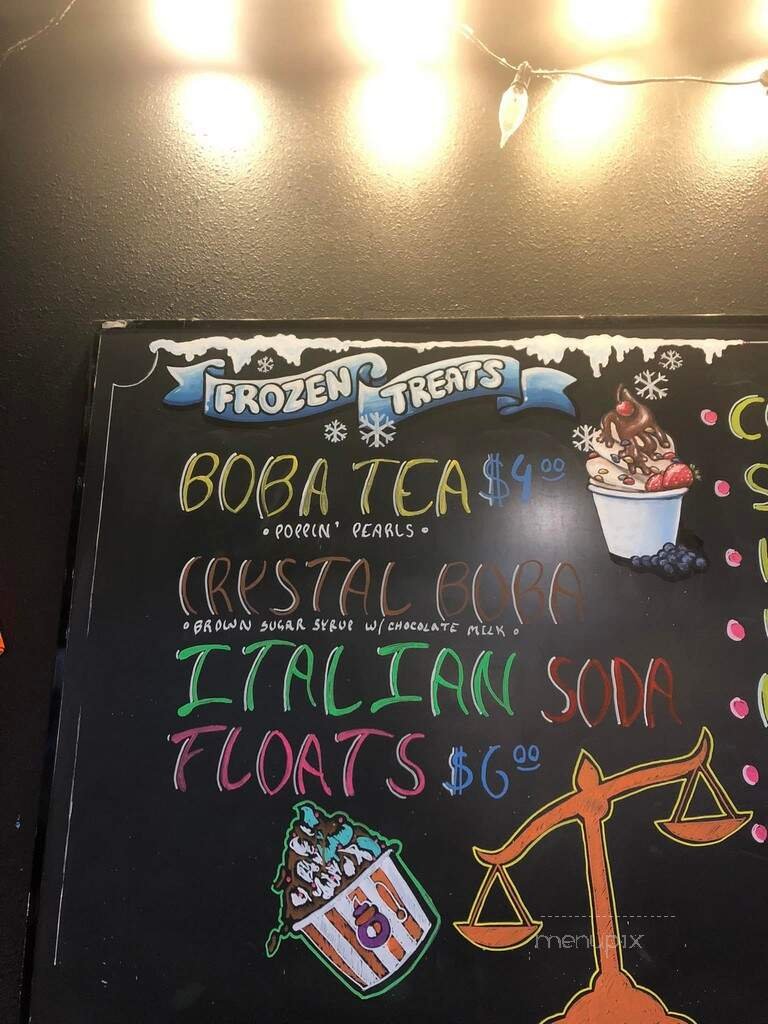 FROZEN TREATS
BOBA TEA $4.00
• POPPIN' PEARLS •
CRYSTAL BOBA
• BROWN SUGAR SYRUP W/ CHOCOLATE MILK •
ITALIAN SODA
FLOATS $6.00
menupix